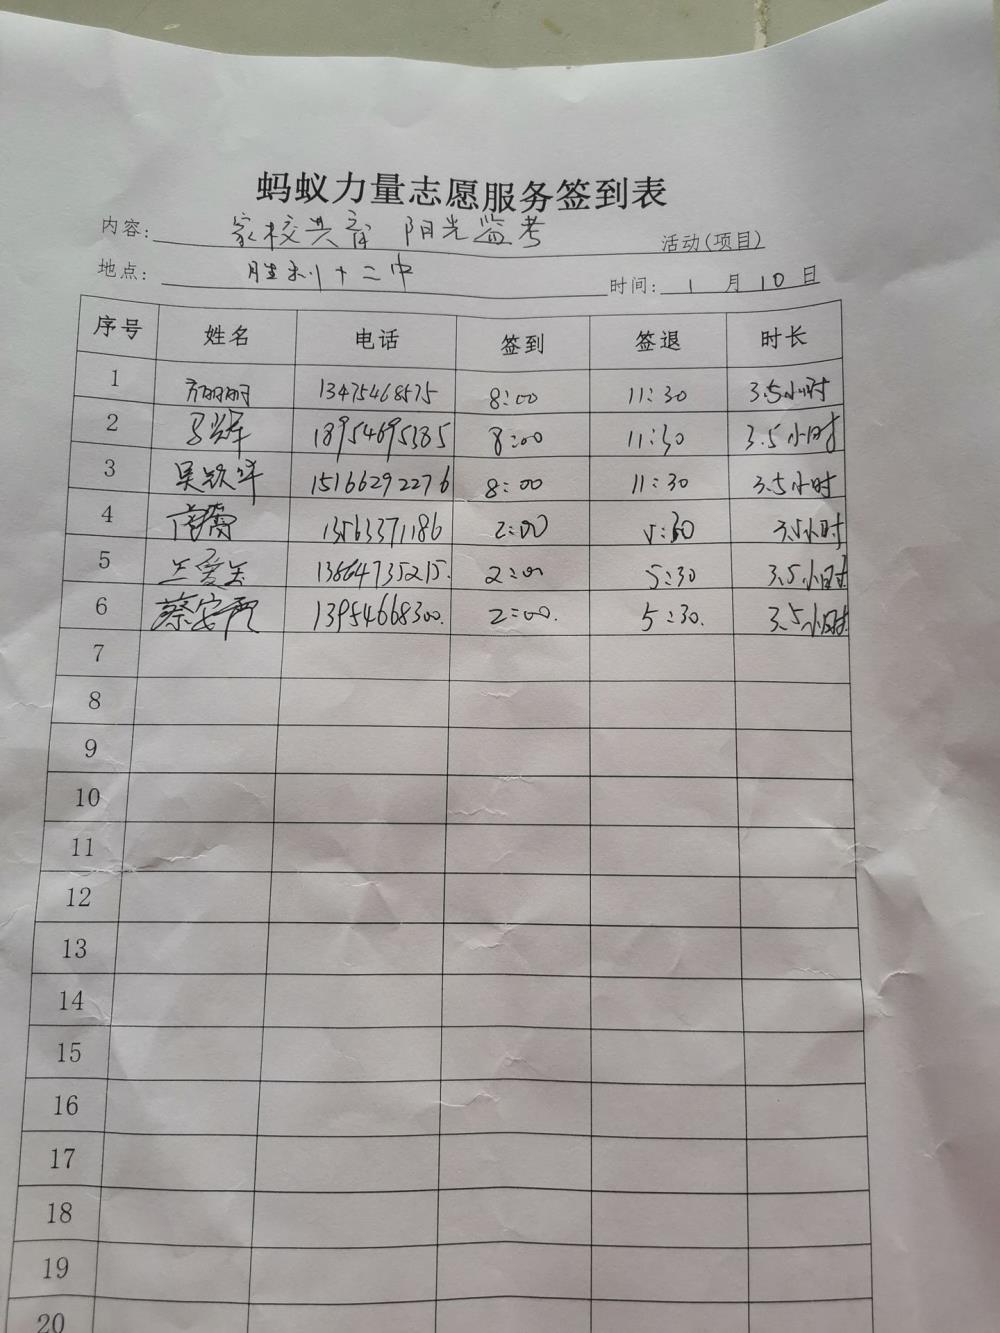 蚂蚁力量志愿服务签到表
内容: 家校共育 阳光监考 活动(项目)
地点: 胜利十二中 时间: 1月10日
序号 姓名 电话 签到 签退 时长
1 13475468575 8:00 11:30 3.5小时
2 18954695385 8:00 11:30 3.5小时
3 15166292276 8:00 11:30 3.5小时
4 13563371186 2:00 5:30 3.5小时
5 13864735215. 2:00 5:30 3.5小时
6 13954668300. 2:00. 5:30. 3.5小时.
7
8
9
10
11
12
13
14
15
16
17
18
19
20